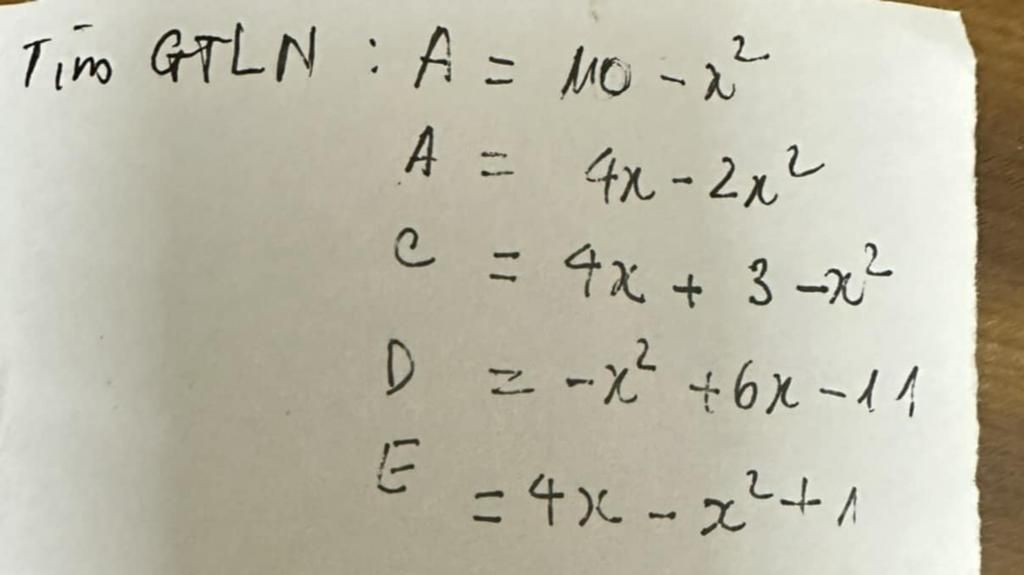 Tìm GTLN : A = 110 - x²
A = 4x - 2x²
C = 4x + 3 - x²
D = -x² + 6x - 11
E = 4x - x² + 1